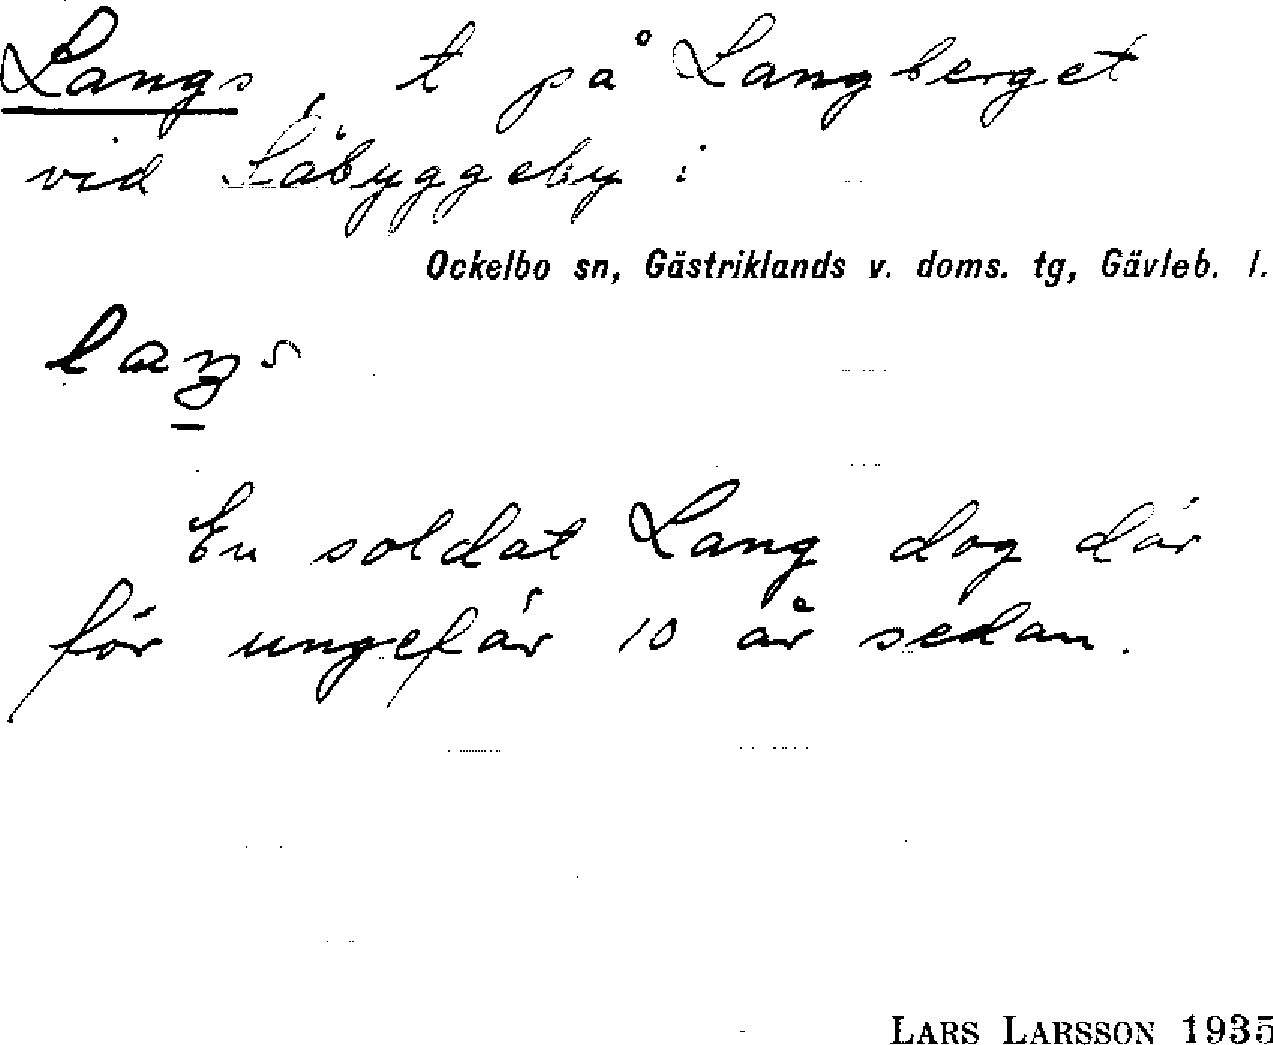 Langs, t på Langberget
vid Såbyggeby i
Ockelbo sn, Gästriklands v. doms. tg, Gävleb. l.
En soldat Lang dog där
för ungefär 10 år sedan.
LARS LARSSON 1935